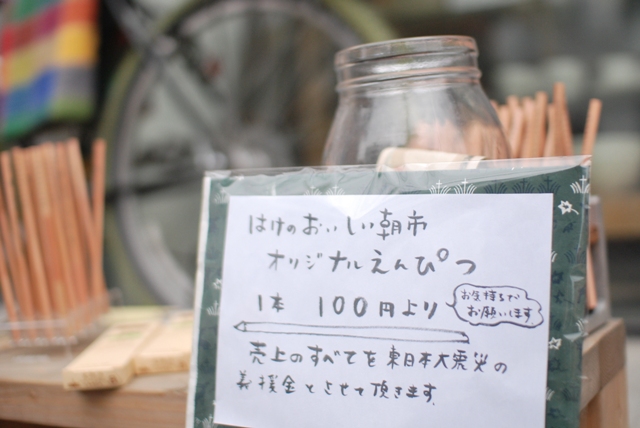 はけのおいしい朝市
オリジナルえんぴつ
1本 100円より
お気持ちで
お願いします
売上のすべてを東日本大震災の
義援金とさせて頂きます.